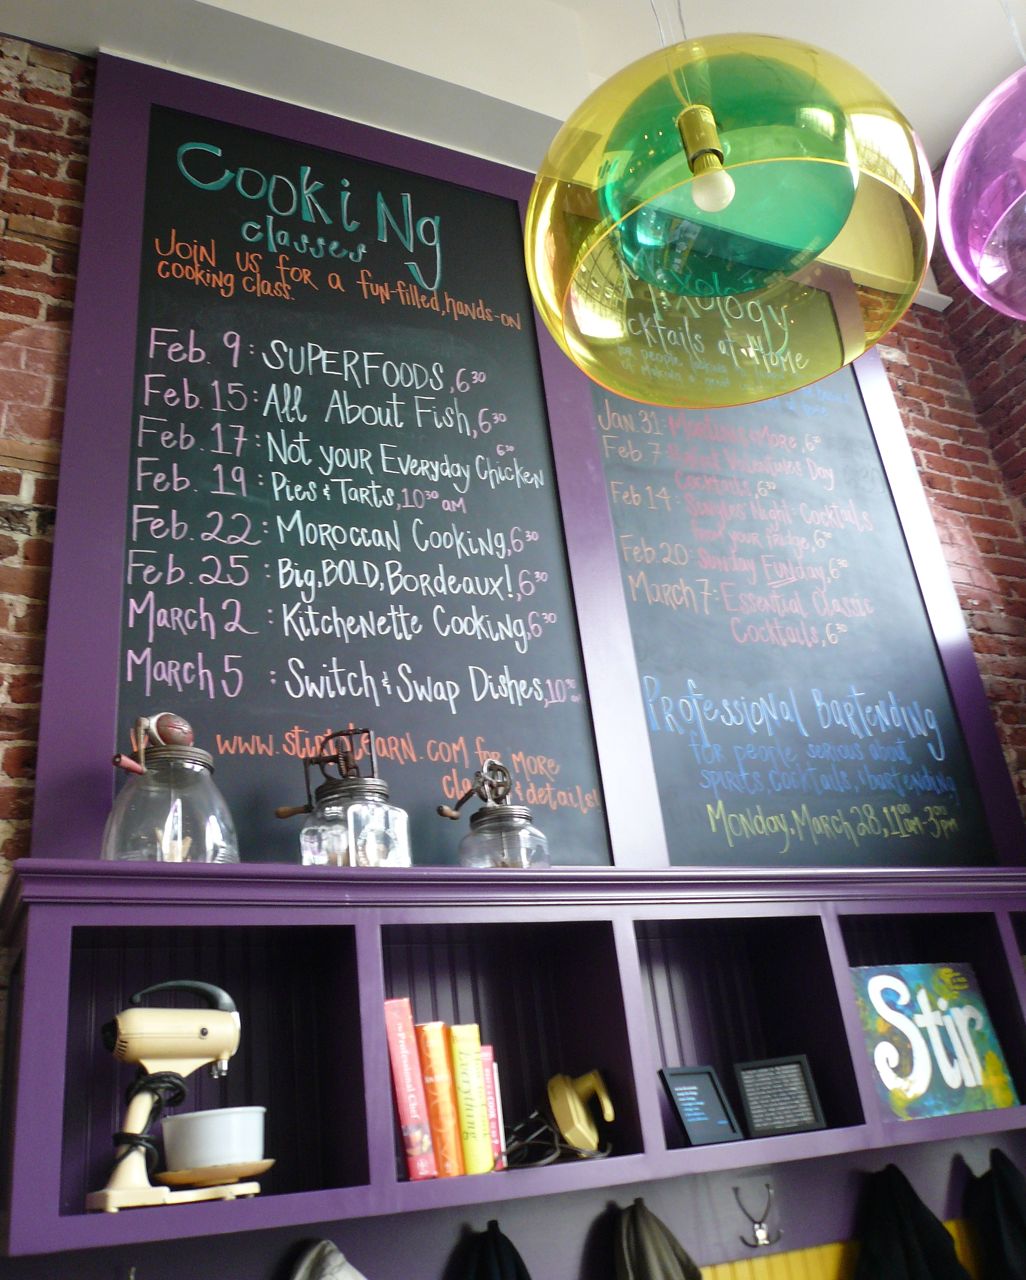 CooKiNg
classes
JOIN US for a fun-filled, hands-on
cooking class.
Feb. 9: SUPERFOODS, 6 30
Feb. 15: All About Fish, 6 30
Feb. 17: Not your Everyday Chicken 6 30
Feb. 19: Pies & Tarts, 10 30 am
Feb. 22: Moroccan Cooking, 6 30
Feb. 25: Big, BOLD, Bordeaux!, 6 30
March 2: Kitchenette Cooking, 6 30
March 5: Switch & Swap Dishes, 10 30 am
www.stirtolearn.com for more
& details!
Mixology
Cocktails at Home
Jan. 31: Martinis & More, 6 30
Feb 7: Valentines Day
Cocktails, 6 30
Feb 14: Singles Night: Cocktails
from your fridge, 6 30
Feb. 20: Sunday FUNday, 6 30
March 7: Essential Classic
Cocktails, 6 30
Professional Bartending
for people serious about
spirits, cocktails, & bartending
Monday, March 28, 11 00 am-3 00 pm
the Professional Chef
Everything
Stir